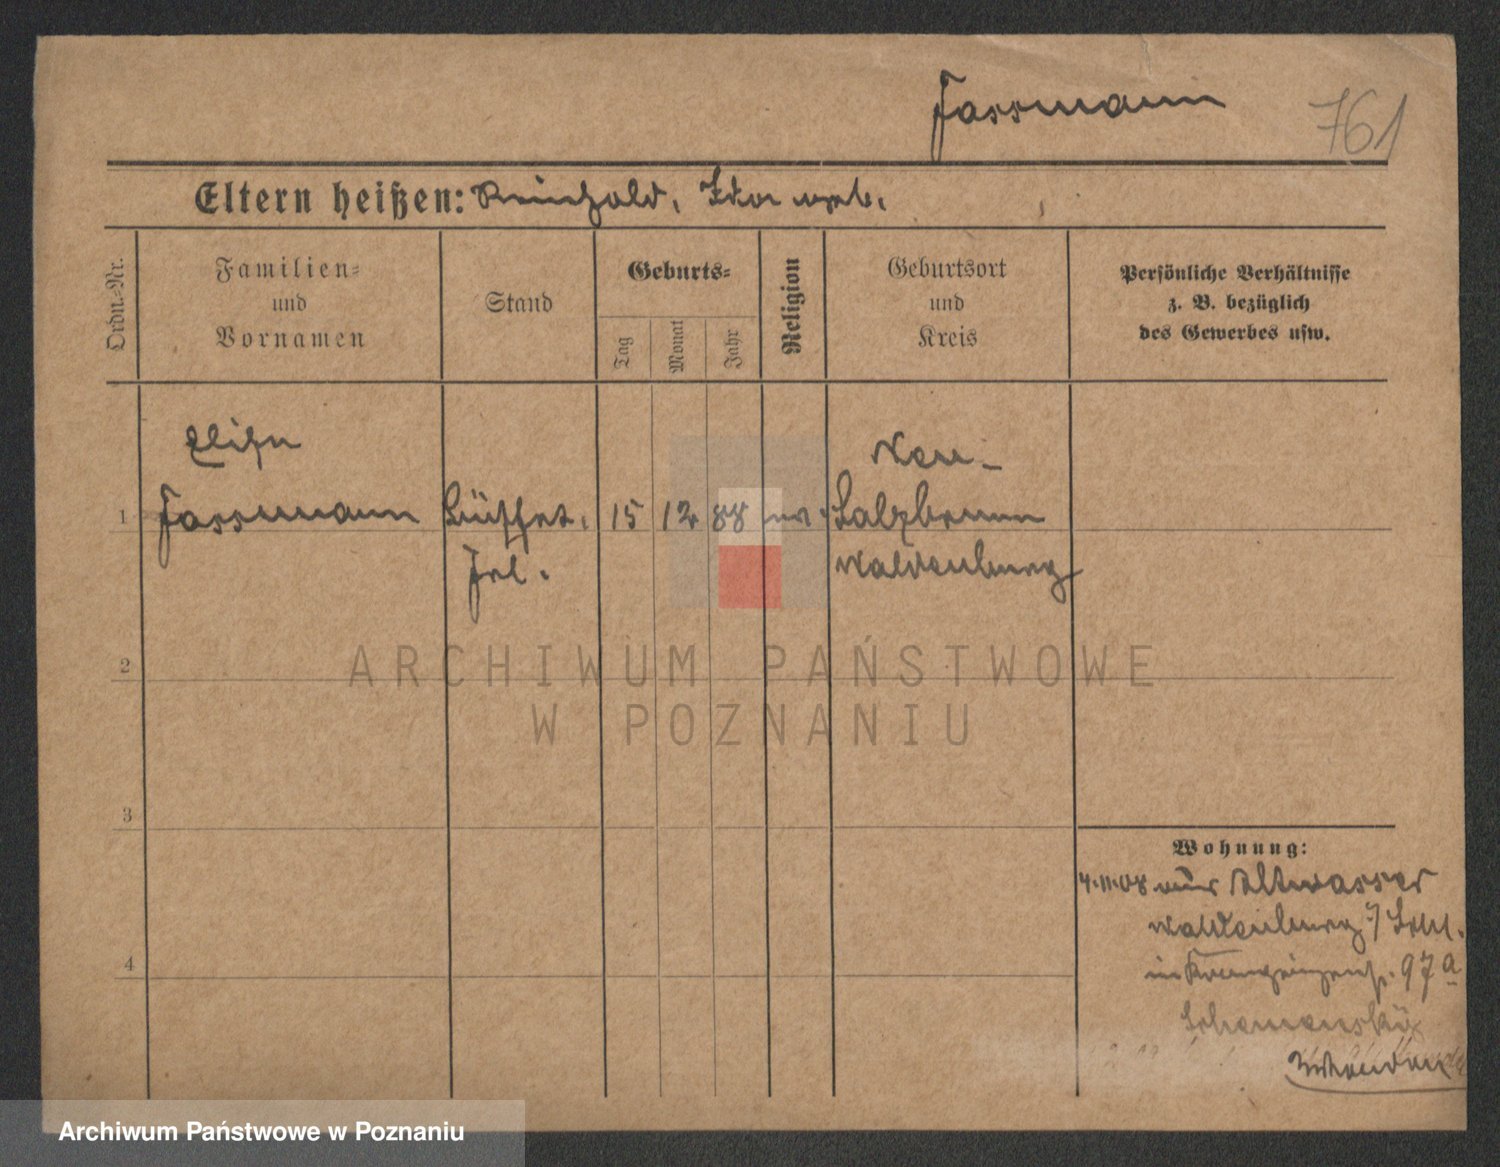 Fassmann
761
Eltern heißen: Reinhold, Ida geb.
Ordn.-Nr.
Familien-
und
Vornamen
Stand
Geburts-
Tag
Monat
Jahr
Religion
Geburtsort
und
Kreis
Persönliche Verhältnisse
z. B. bezüglich
des Gewerbes usw.
Elise
Neu-
1 Fassmann Büffet. 15 12 88 ev. Salzbrunn
Frl. Waldenburg
2
ARCHIWUM PAŃSTWOWE
W POZNANIU
3
Wohnung:
4.11.08 aus Altwasser
Waldenburg i/ Schl.
4
in 97a
Archiwum Państwowe w Poznaniu